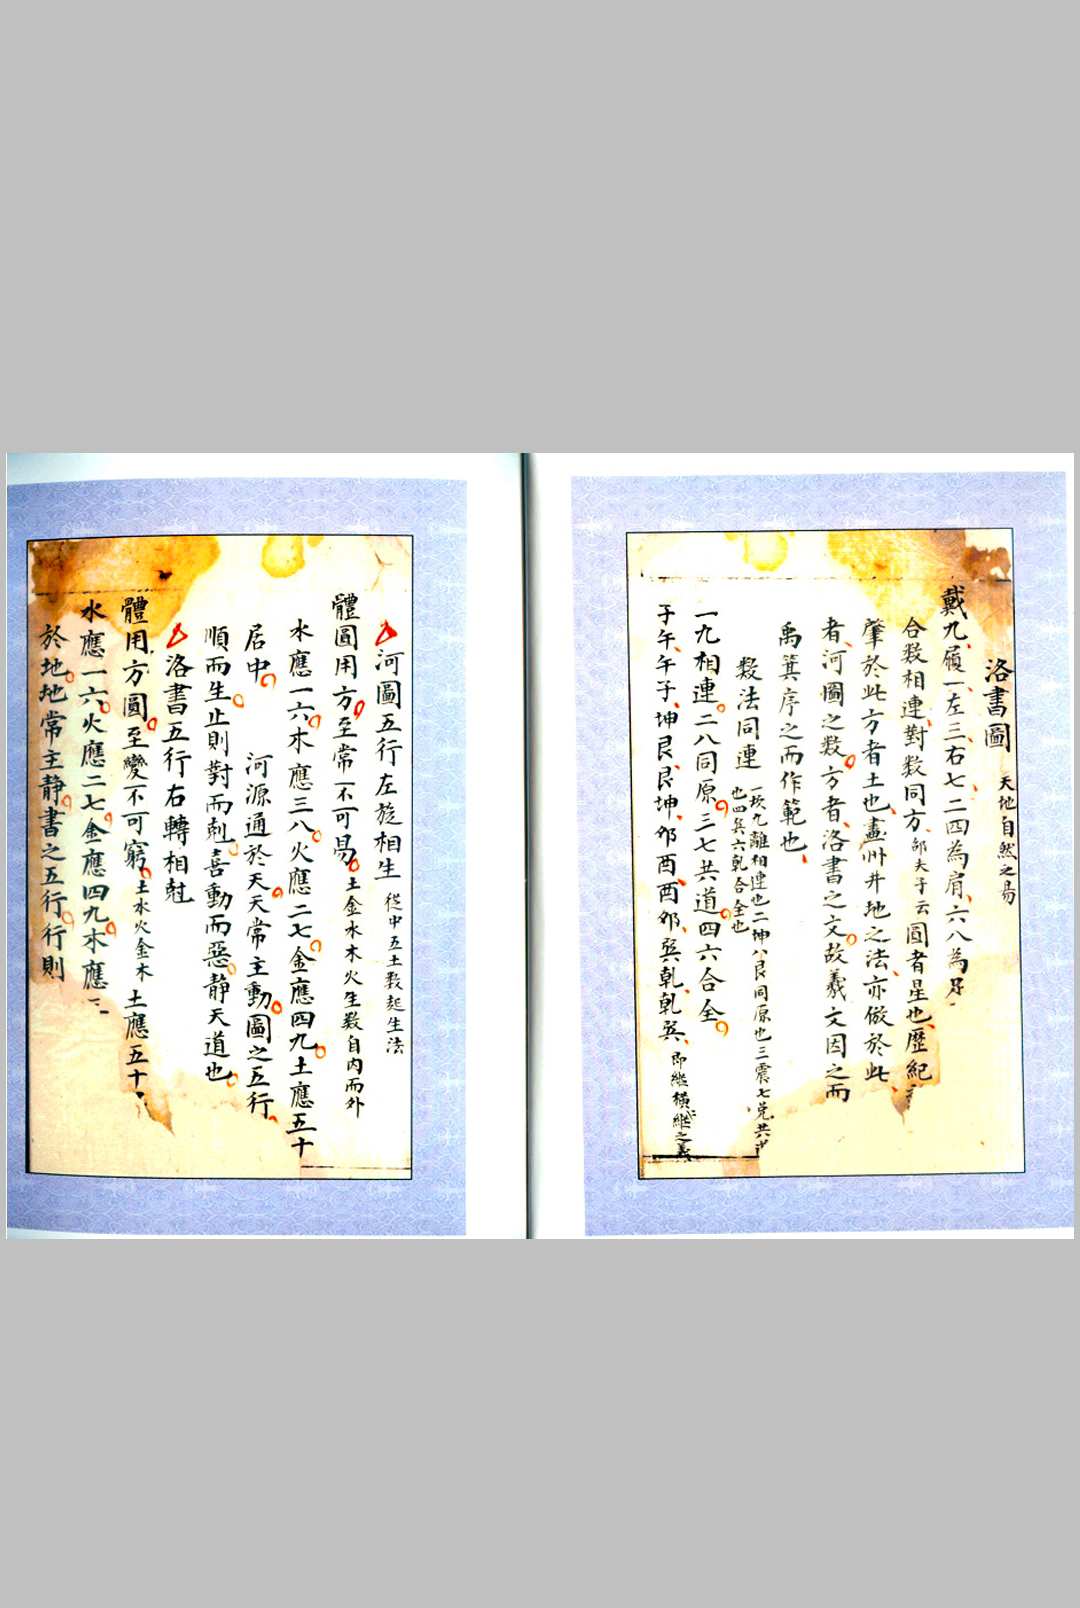 洛書圖 天地自然之易
戴九履一左三右七二四為肩六八為足
合数相連對数同方邵夫子云圓者星也歷紀
肇於此方者土也畫州井地之法亦倣於此
者河圖之数方者洛書之文故羲文因之而
禹箕序之而作範也
数法同連 一坎九離相連也二坤八艮同原也三震七兑共
也四巽六乾合全也
一九相連二八同原三七共道四六合全
子午午子坤艮艮坤夘酉酉夘巽乾乾巽即縱橫縱之義
河圖五行左旋相生 從中五土数起生法
體圓用方至常一不可易土金水木火生数自内而外
水應一六木應三八火應二七金應四九土應五十
居中 河源通於天天常主動圖之五行
順而生止則對而剋喜動而惡静天道也
洛書五行右轉相尅
體用方圓至變不可窮土水火金木土應五十
水應一六火應二七金應四九木應三
於地地常主静書之五行行則